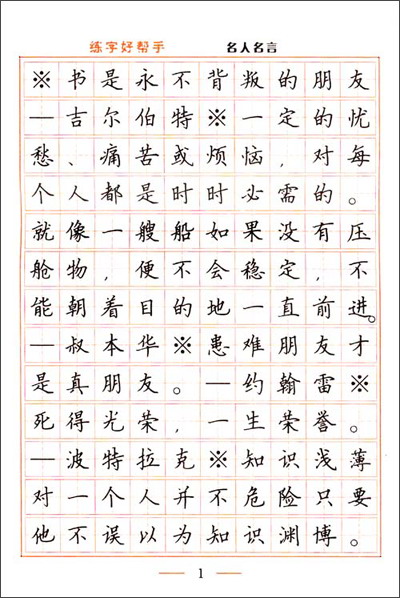 练字好帮手 名人名言
※书是永不背叛的朋友
—吉尔伯特※一定的忧
愁、痛苦或烦恼,对每
个人都是时时必需的。
就像一艘船如果没有压
舱物,便不会稳定,不
能朝着目的地一直前进。
—叔本华※患难朋友才
是真朋友。—约翰雷※
死得光荣,一生荣誉。
—波特拉克※知识浅薄
对一个人并不危险只要
他不误以为知识渊博。
1